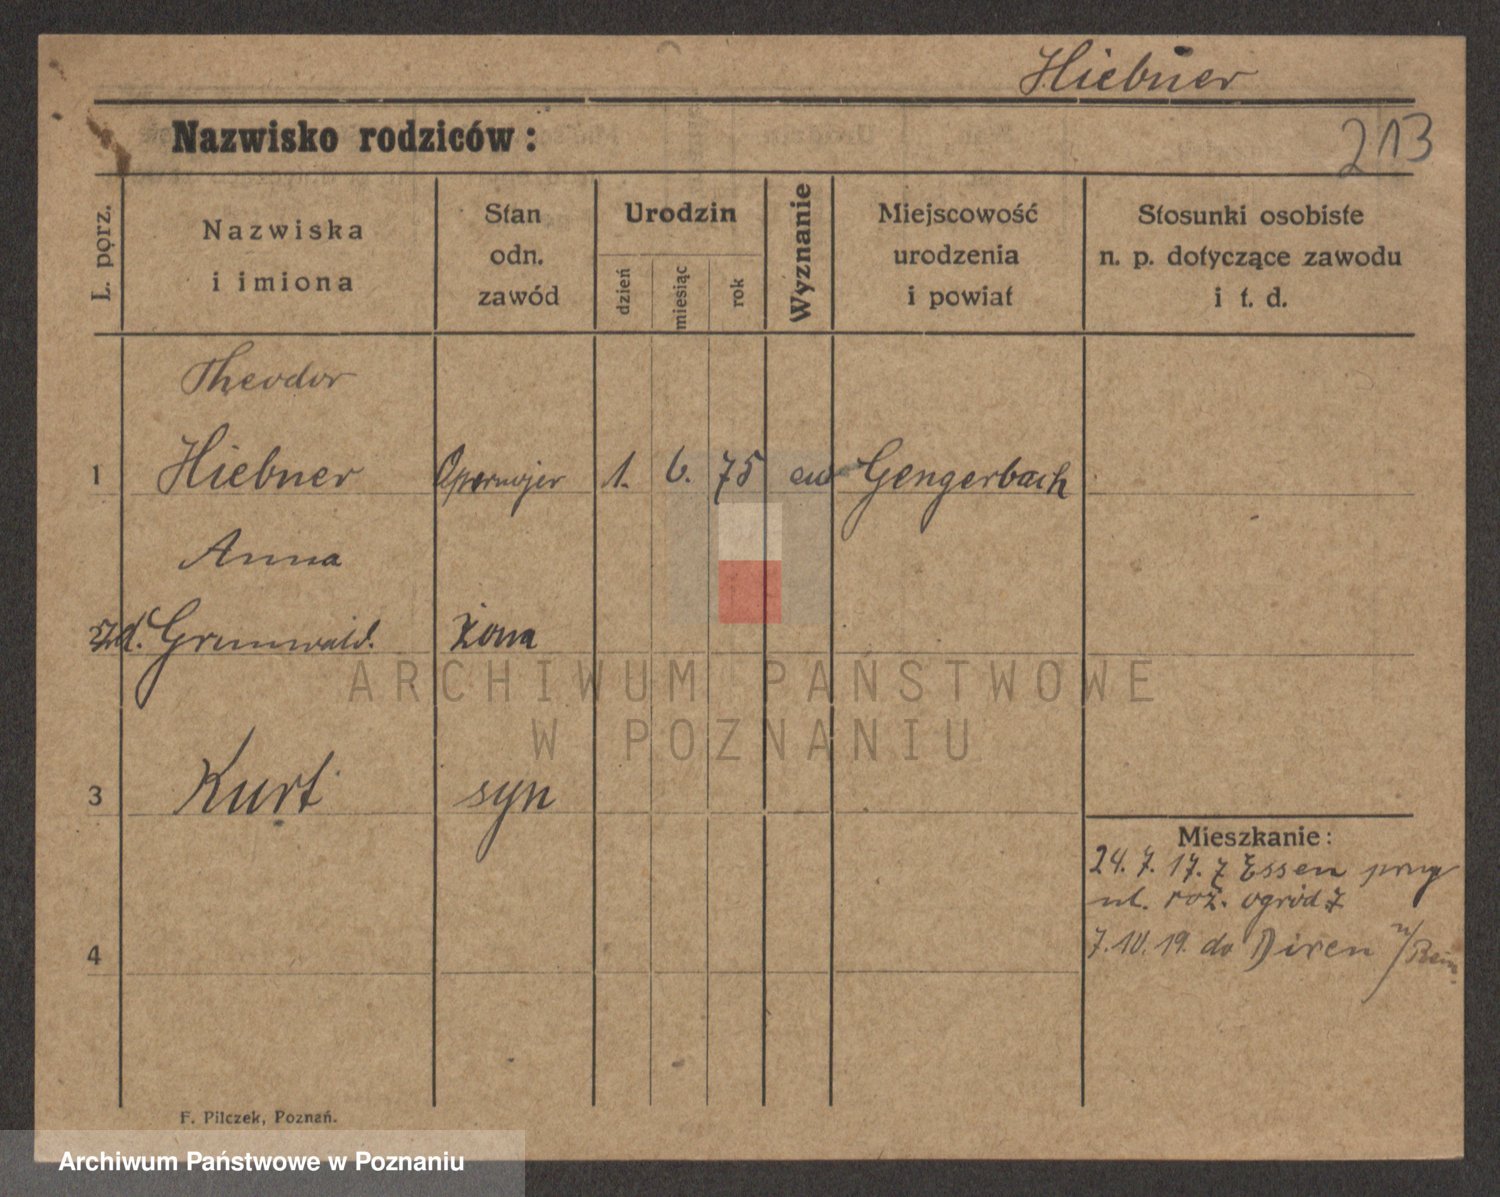 Hiebner
Nazwisko rodziców:
213
L. porz.
Nazwiska
i imiona
Stan
odn.
zawód
Urodzin
dzień
miesiąc
rok
Wyznanie
Miejscowość
urodzenia
i powiat
Stosunki osobiste
n. p. dotyczące zawodu
i t. d.
Theodor
1 Hiebner 1. 6. 75 ew Gengerbach
Anna
zd. Grunwald. żona
3 Kurt syn
Mieszkanie:
24. 7. 17. z Essen
ul. roż. ogród
4
7. 10. 19. do Diren
F. Pilczek, Poznań.
ARCHIWUM PAŃSTWOWE
W POZNANIU
Archiwum Państwowe w Poznaniu